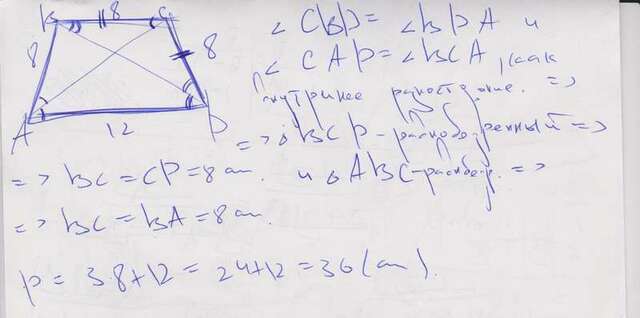 B 8 C
8 8
A 12 D
∠CBD = ∠BDA и
∠CAD = ∠BCA, как
внутринее разностояние. =>
=> △BCD - равнобедренный =>
=> BC = CD = 8 см. и △ABC - равнобед. =>
=> BC = BA = 8 см.
p = 3·8+12 = 24+12 = 36 (см).